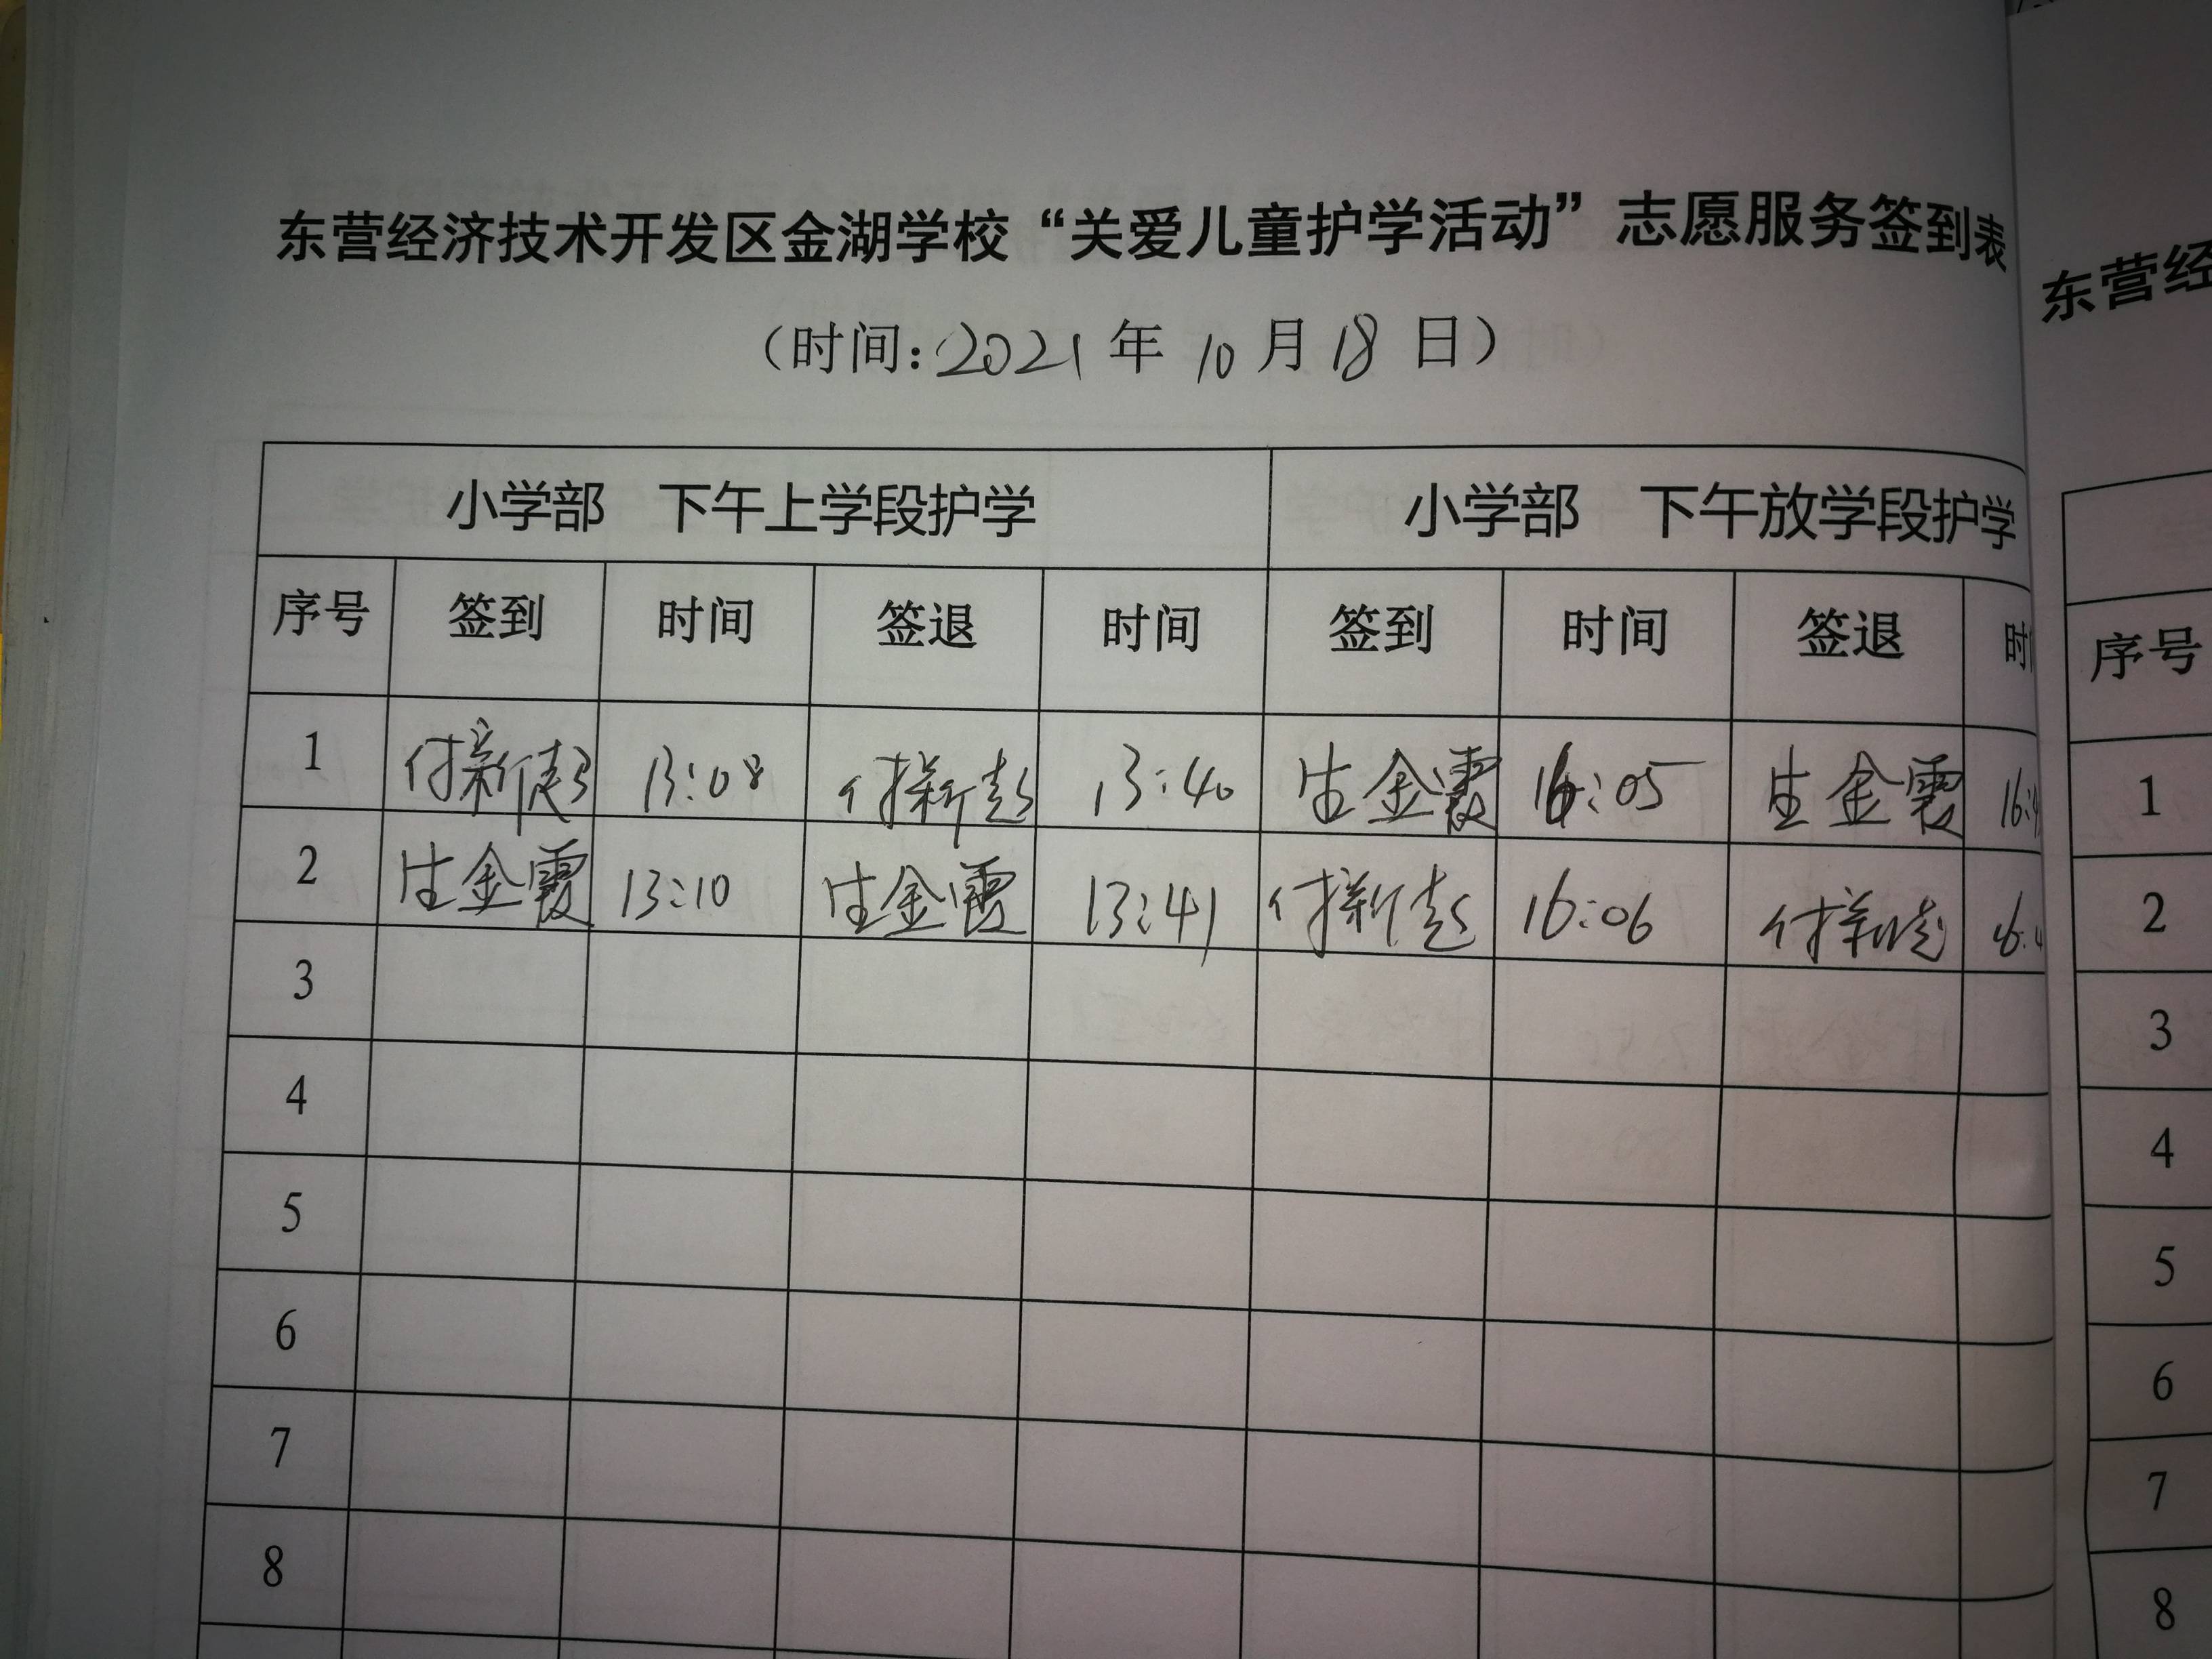 东营经济技术开发区金湖学校“关爱儿童护学活动”志愿服务签到表
（时间：2021年10月18日）
小学部 下午上学段护学 小学部 下午放学段护学
序号 签到 时间 签退 时间 签到 时间 签退 时
1 付新起 13:08 付新起 13:40 生金霞 16:05 生金霞 16:
2 生金霞 13:10 生金霞 13:41 付新起 16:06 付新起 16:
3
4
5
6
7
8
东营经
序号
1
2
3
4
5
6
7
8